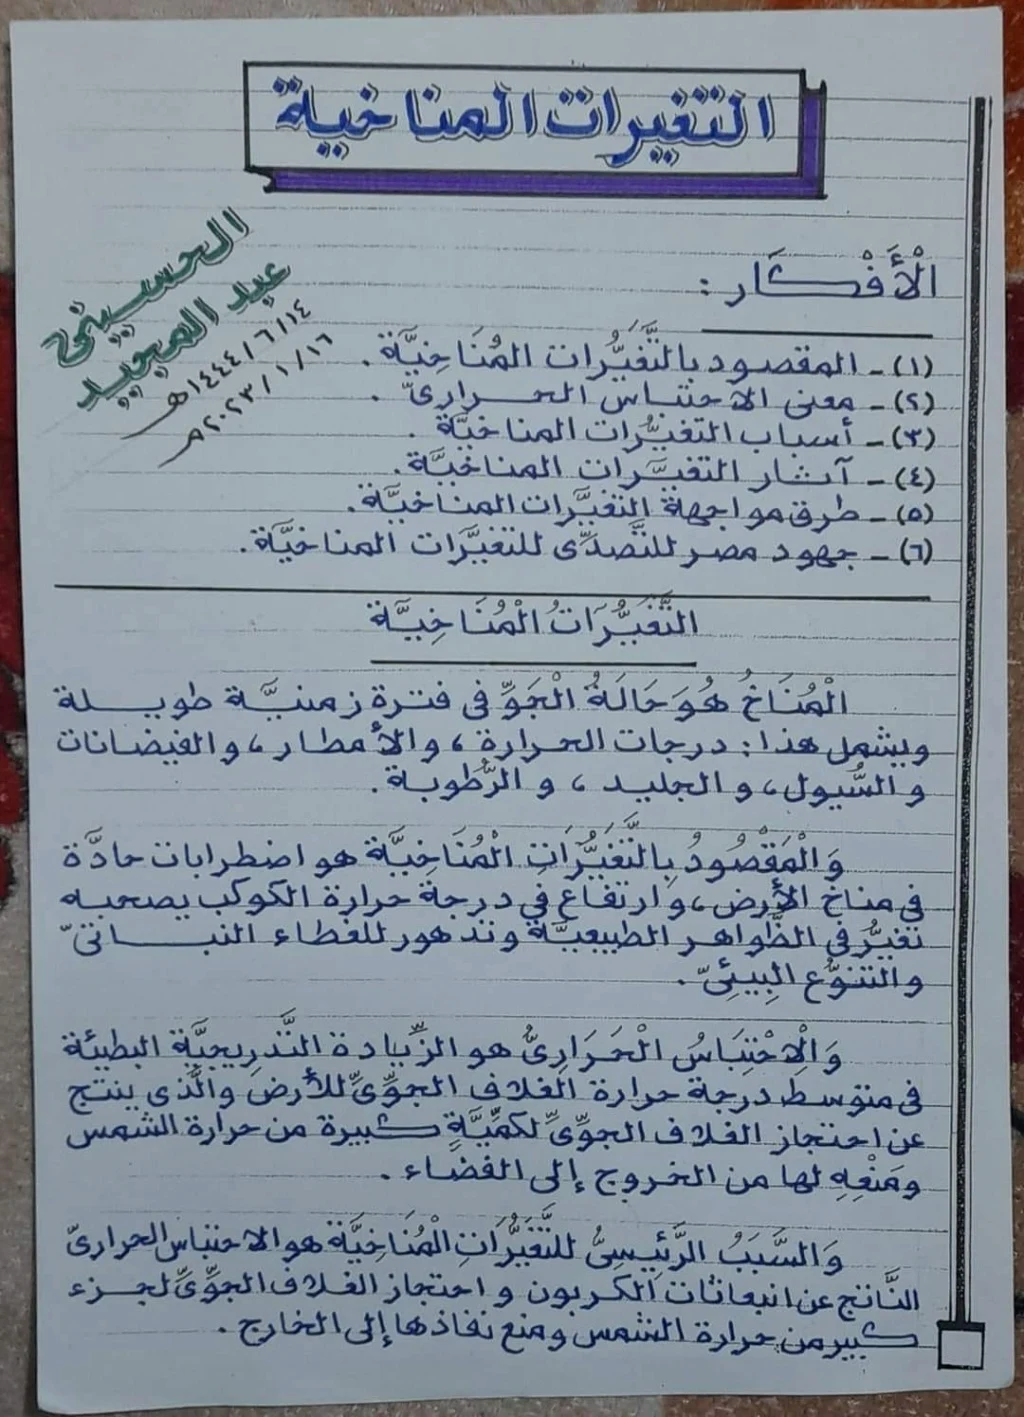 التغيرات المناخية
الحسيني
عبد المجيد
١٤٤٤/٦/١٤هـ
٢٠٢٣/١/١٦م
الْأَفْكَار :
(١) - المقصود بالتَّغَيُّرات المُنَاخِيَّة .
(٢) - معنى الاحتباس الحرارىّ .
(٣) - أسباب التغيُّرات المناخيَّة .
(٤) - آثار التغيُّرات المناخيَّة .
(٥) - طرق مواجهة التغيُّرات المناخيَّة .
(٦) - جهود مصر للتَّصدِّى للتغيُّرات المناخيَّة .
التَّغَيُّرَاتُ الْمُنَاخِيَّة
الْمُنَاخُ هُوَ حَالَةُ الْجَوِّ فى فترة زمنيَّة طويلة
ويشمل هذا : درجات الحرارة ، والأمطار ، والفيضانات
والسُّيول ، والجليد ، والرُّطوبة .
وَالْمَقْصُودُ بِالتَّغَيُّرَاتِ الْمُنَاخِيَّة هو اضطرابات حادَّة
فى مناخ الأرض ، وارتفاع فى درجة حرارة الكوكب يصحبه
تغيُّر فى الظَّواهر الطبيعيَّة وتدهور للغطاء النباتىّ
والتنوُّع البِيئِىّ .
وَالِاحْتِبَاسُ الْحَرَارِىُّ هو الزِّيادة التَّدرِيجيَّة البطيئة
فى متوسط درجة حرارة الغلاف الجوِّىِّ للأرض والَّذى ينتج
عن احتجاز الغلاف الجوِّىِّ لكمِّيَّةٍ كبيرة من حرارة الشمس
ومَنْعِهِ لها من الخروج إلى الفضاء .
وَالسَّبَبُ الرَّئِيسِىُّ لِلتَّغَيُّرَاتِ الْمُنَاخِيَّة هو الاحتباس الحرارىّ
النَّاتج عن انبعاثات الكربون واحتجاز الغلاف الجوِّىِّ لجزء
كبير من حرارة الشمس ومنع نفاذها إلى الخارج .